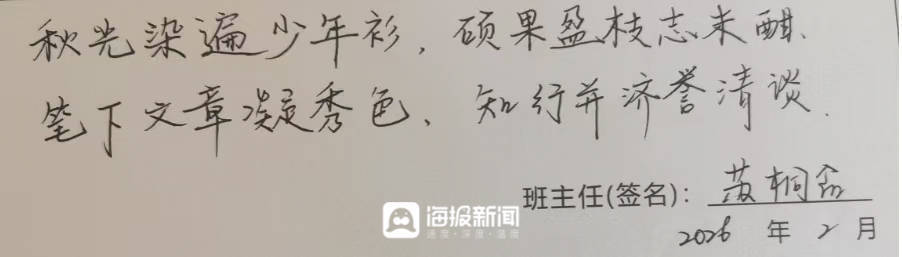 秋光染遍少年衫，硕果盈枝志未酣.
笔下文章凝秀色、知行并济誉清谈.
班主任(签名)：苏桐
2026 年 2 月
海报新闻
速度·深度·温度